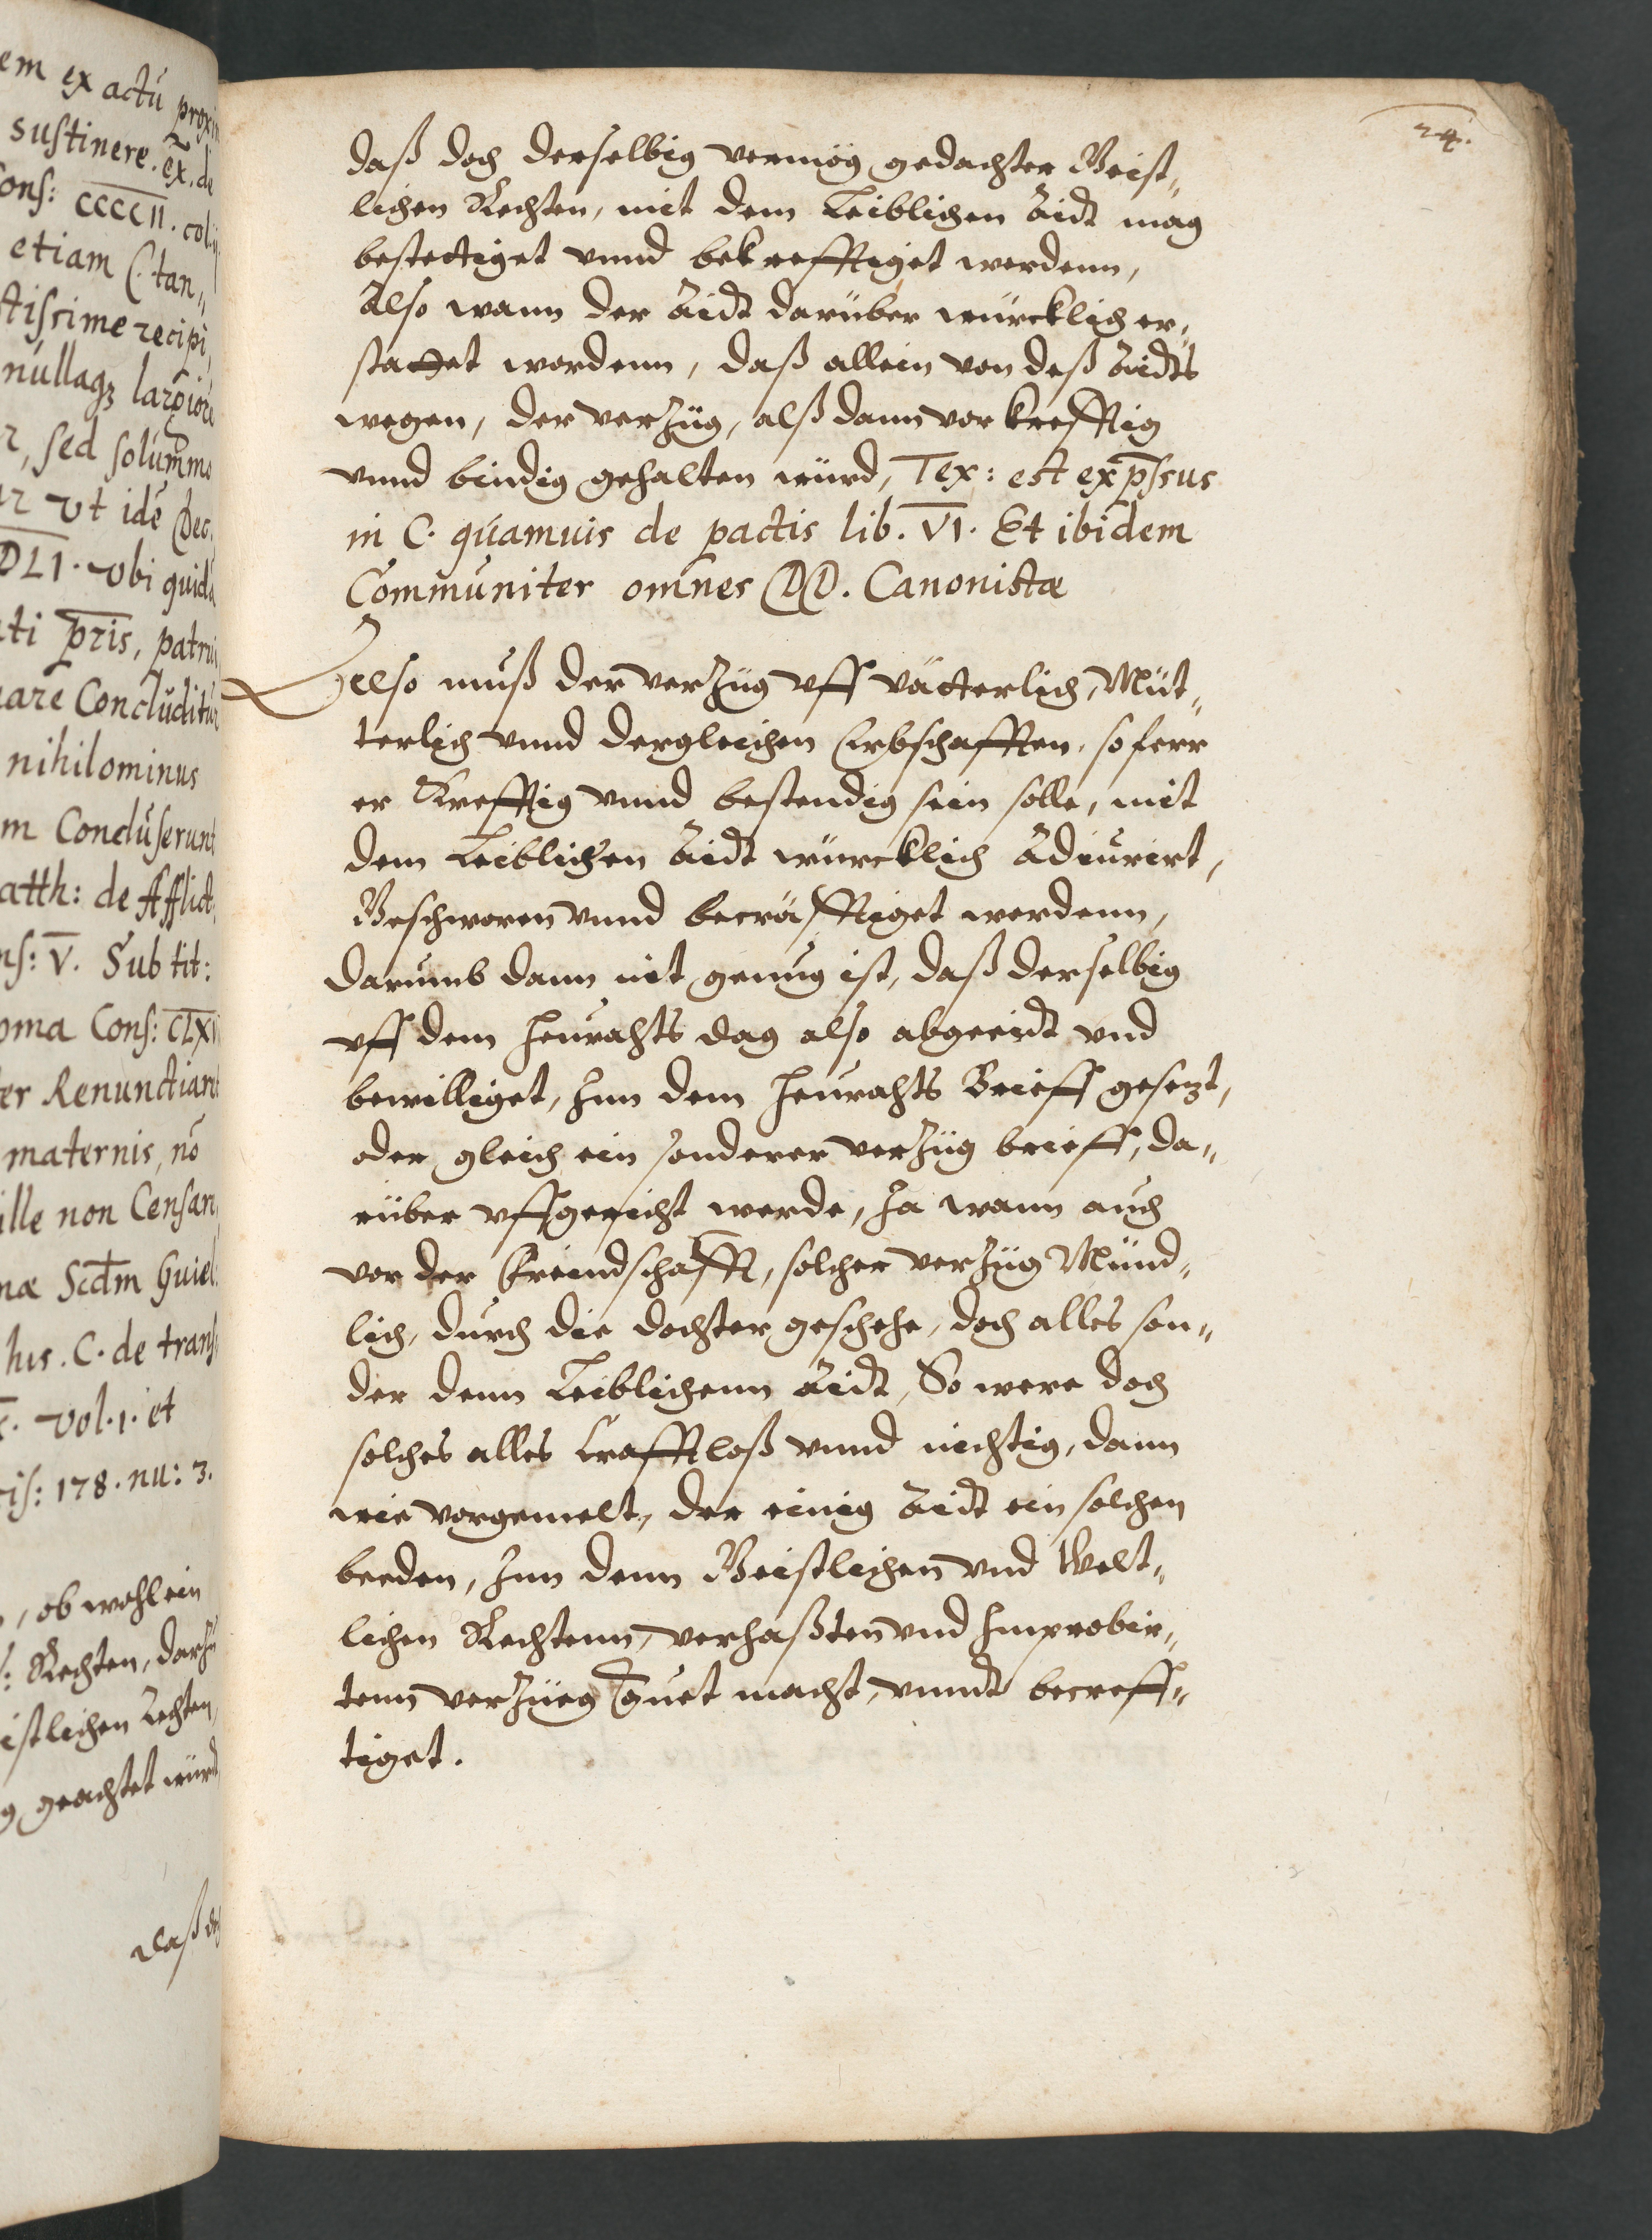 em ex actu prox
sustinere. ex. de
Cons: CCCCII. col.
etiam C. tan„
ctissime recipi
nullaqz largiore
r, sed solummo
ur ut idē Dec.
DLI. ubi quidā
ti pris, patru
are Concluditur
nihilominus
m Concluserunt
atth: de Afflict.
ns: V. Sub tit:
oma Cons: CLXV
er Renunctiare
maternis, nō
ille non Censar
næ Scdm Guiel
hus. C. de trans
vol. 1. et
ris: 178. nu: 3.
, ob wohl ein
: Rechten, darzu
istlichen Rechten,
g geachtet würdt
daß doch
24.
daß doch derselbig vermög gedachter Geist„
lichen Rechten, mit dem Leiblichen Aidt mag
bestettiget vnnd bekrefftiget werdenn,
Also wann der Aidt darüber würcklich er„
stattet wordenn, daß allein von deß Aidts
wegen, der verzüg, alß dann vor krefftig
vnnd bindig gehalten würd, Tex: est exp̄ssus
in C. quamuis de pactis lib. VI. Et ibidem
Communiter omnes DD. Canonistæ
Also muß der verzüg vff vätterlich, Müt„
terlich vnnd dergleichen Erbschafften, so ferr
er Krefftig vnnd bestendig sein solle, mit
dem Leiblichen Aidt würcklich Adiurirt,
Beschworen vnnd becräfftiget werdenn,
darumb dann nit genug ist, daß derselbig
vff dem Heurahts dag also abgeredt vnd
bewilliget, Inn dem Heurahts Brieff gesezt,
oder gleich ein sonderer verzüg brieff, da„
rüber vffgericht werde, Ja wann auch
vor der Freindschafft, solcher verzüg Münd„
lich, durch die dochter geschehe, doch alles son„
der denn Leiblichenn Aidt, So were doch
solches alles krafftloß vnnd nichtig, dann
wie vorgemelt, der einig Aidt ein solchen
beeden, Inn denn Geistlichen vnd Welt„
lichen Rechtenn, verhaßten vnd Improbir„
tenn verzüeg Guet macht, vnndt becreff„
tiget.